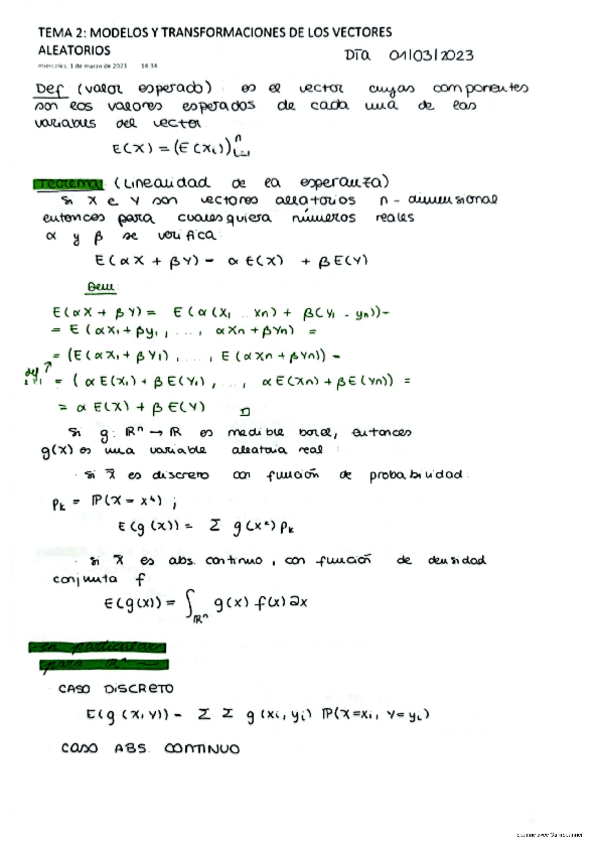 TEMA 2: MODELOS Y TRANSFORMACIONES DE LOS VECTORES
ALEATORIOS
DÍA 01/03/2023
miércoles, 1 de marzo de 2023 14:14
Def (valor esperado) es el vector cuyas componentes
son los valores esperados de cada una de las
variables del vector
E(X) = (E(Xi))ⁿi=1
Teorema (Linealidad de la esperanza)
Si X e Y son vectores aleatorios n-dimensional
entonces para cualesquiera números reales
α y β se verifica:
E(αX + βY) = αE(X) + βE(Y)
Dem:
E(αX + βY) = E(α(X1 .. Xn) + β(Y1 .. Yn)) =
= E(αX1 + βy1, ..., αXn + βYn) =
= (E(αX1 + βY1), ..., E(αXn + βYn)) =
= (αE(X1) + βE(Y1), ..., αE(Xn) + βE(Yn)) =
= αE(X) + βE(Y) □
Si g: ℝⁿ → ℝ es medible borel, entonces
g(x) es una variable aleatoria real:
· si X̄ es discreto con función de probabilidad:
Pk = ℙ(X = xᵏ);
E(g(x)) = Σ g(xᵏ) Pk
· si X̄ es abs. continuo, con función de densidad
conjunta f
E(g(x)) = ∫ℝⁿ g(x) f(x) ∂x
en particular
para ℝⁿ
CASO DISCRETO
E(g(X,Y)) = Σ Σ g(xi, yi) ℙ(X=xi, Y=yi)
· CASO ABS. CONTINUO